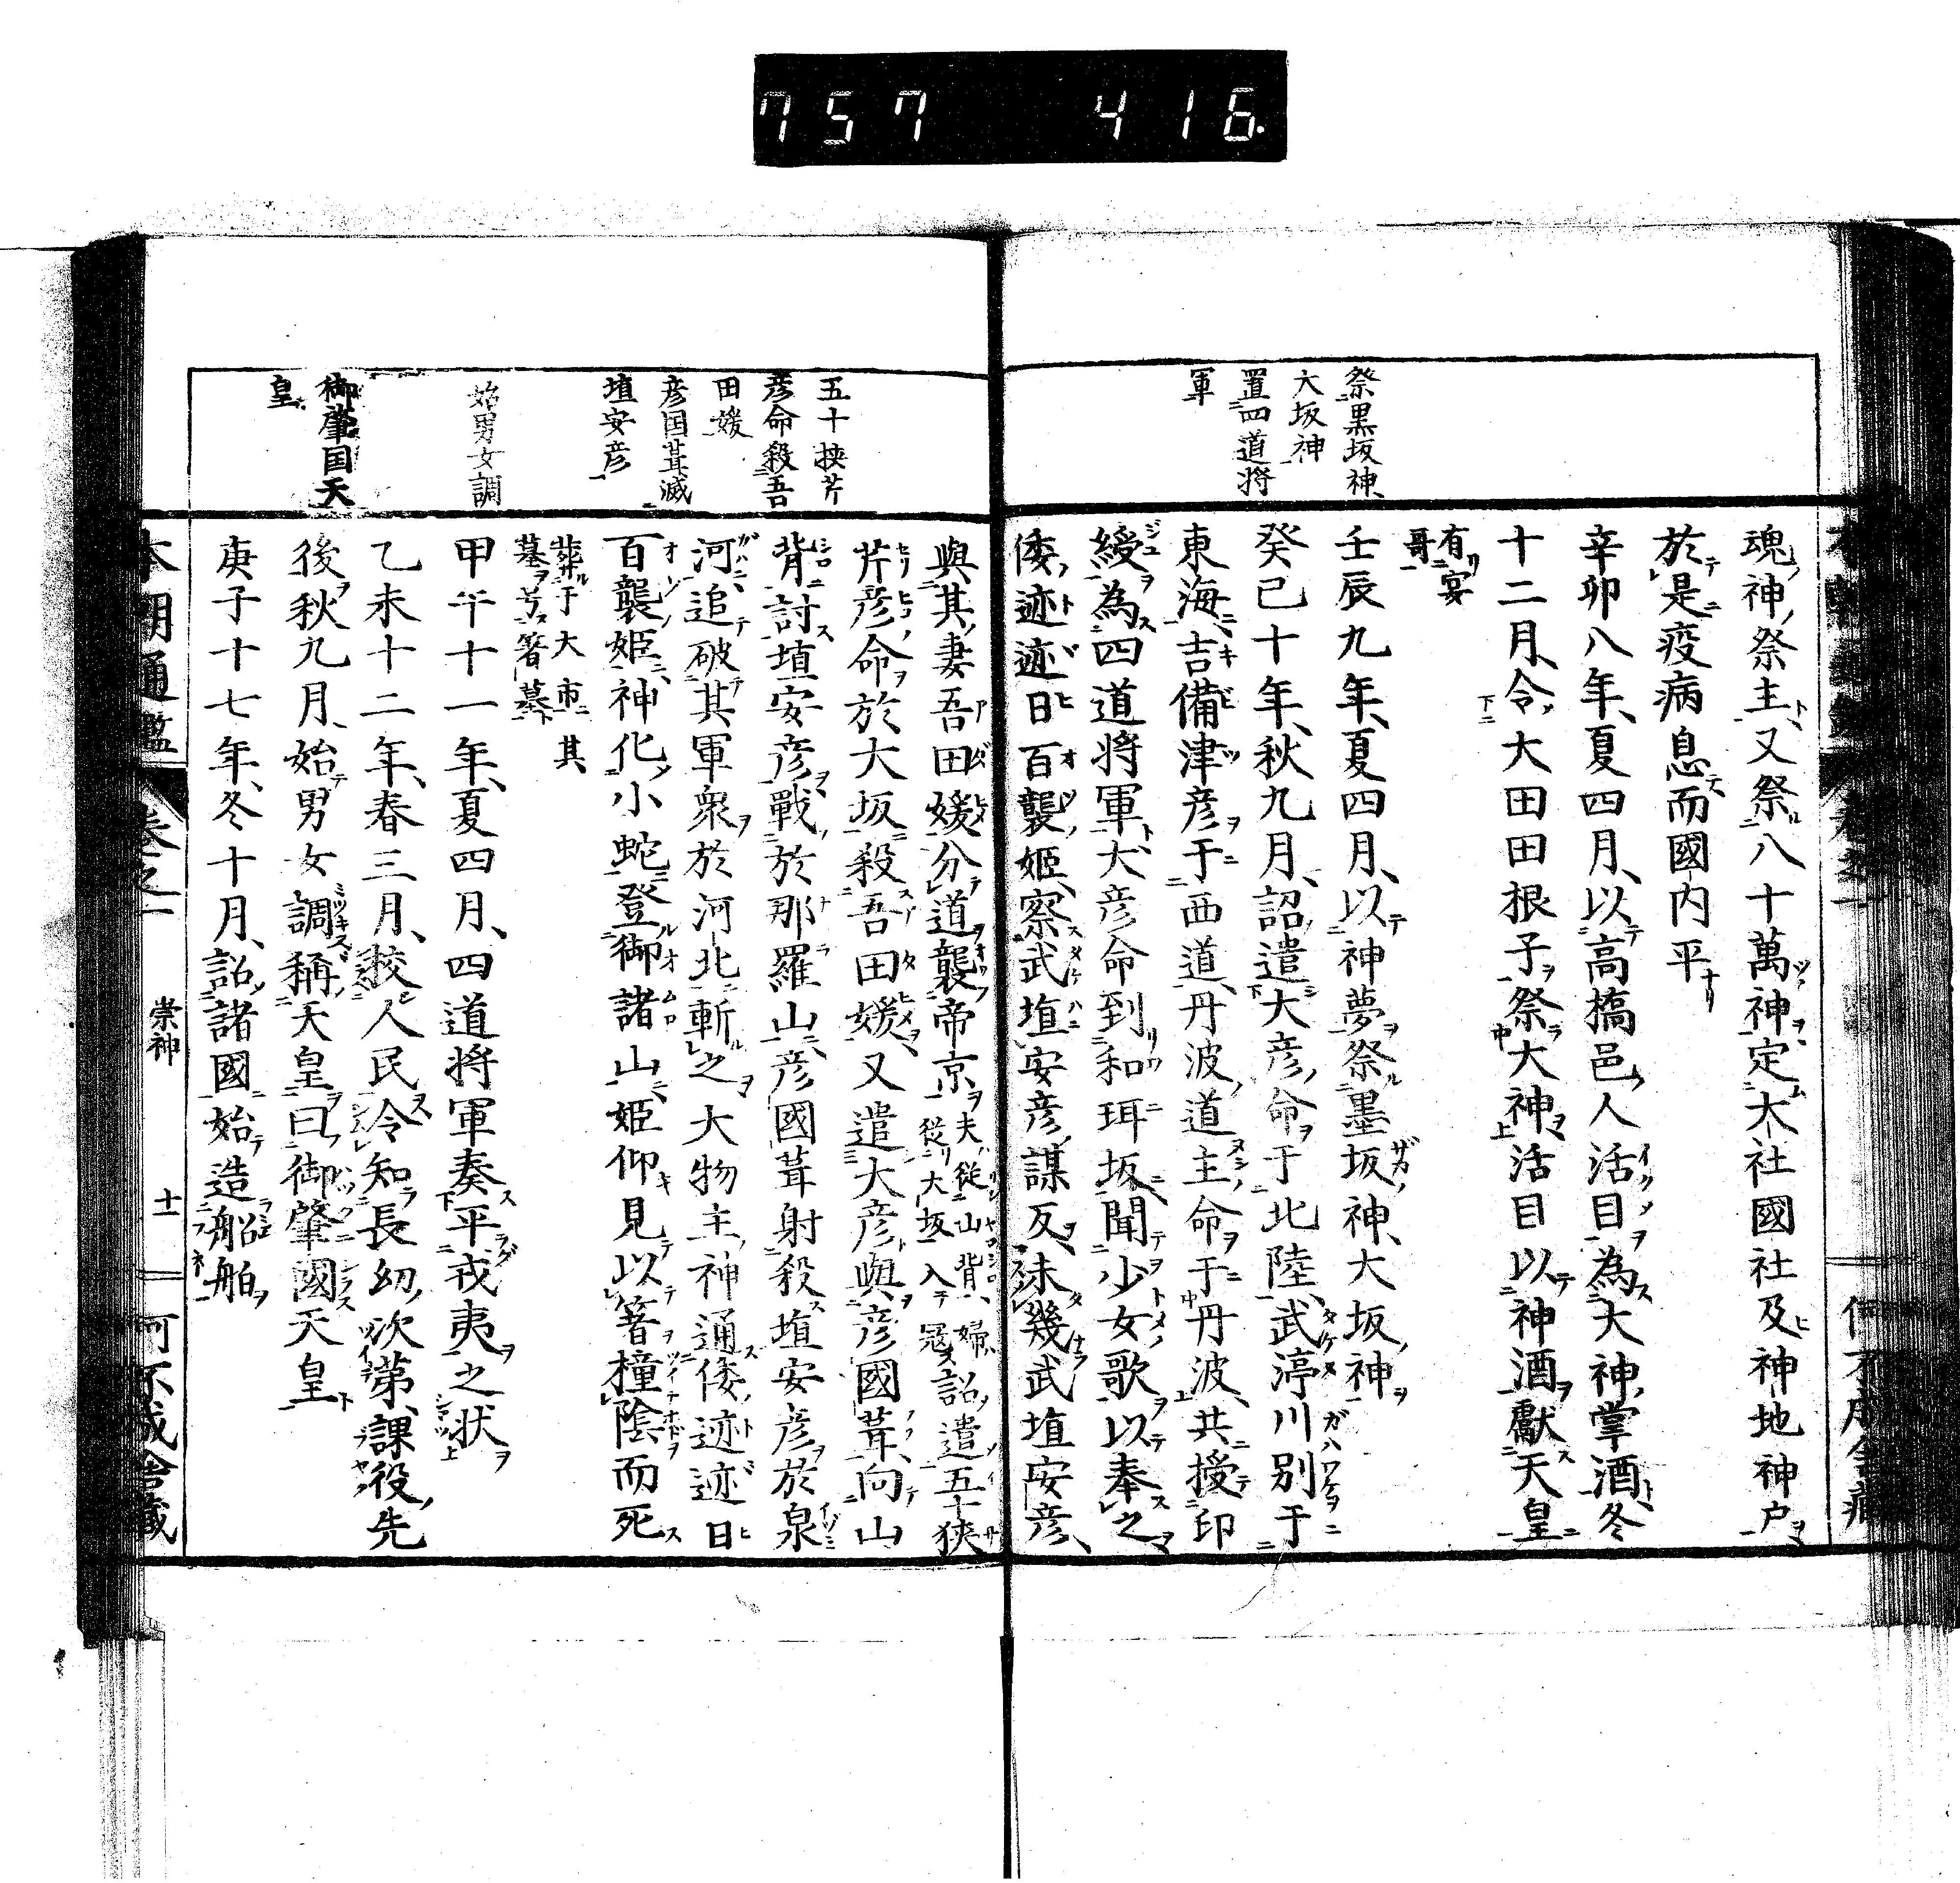 757 416.
祭黒坂神、
大坂神
置四道将
軍
魂神祭主、又祭八十萬神定大社國社及神地神戸
於是疫病息而國内平
辛卯八年、夏四月、以高橋邑人活目為大神掌酒、冬
十二月、令大田田根子祭大神活目以神酒獻天皇
有宴
哥
壬辰九年、夏四月、以神夢祭墨坂神、大坂神
癸己十年、秋九月、詔遣大彦命于北陸、武渟川別于
東海、吉備津彦于西道、丹波道主命于丹波、共授印
綬為四道将軍、大彦命到和珥坂、聞少女歌以奉之
倭迹迹日百襲姬、察武埴安彦謀反、未幾武埴安彦、
五十挾芹
彦命殺吾
田媛
彦国葺滅
埴安彦
始男女調
御肇国天
皇
與其妻吾田媛分道襲帝京夫從山背、婦
從大坂入冦詔遣五十狹
芹彦命於大坂殺吾田媛、又遣大彦與彦國葺、向山
背討埴安彦戰於那羅山、彦國葺射殺埴安彦於泉
河追破其軍衆於河北斬之大物主神通倭迹迹日
百襲姬神化小蛇登御諸山姬仰見以箸橦陰而死
葬于大市其
墓号箸墓
甲午十一年、夏四月、四道将軍奏平戎夷之状
乙未十二年、春三月、校人民令知長幼次第、課役先
後秋九月、始男女調稱天皇曰御肇國天皇
庚子十七年、冬十月、詔諸國始造船舶
本朝通鑑 卷之一 崇神 十一